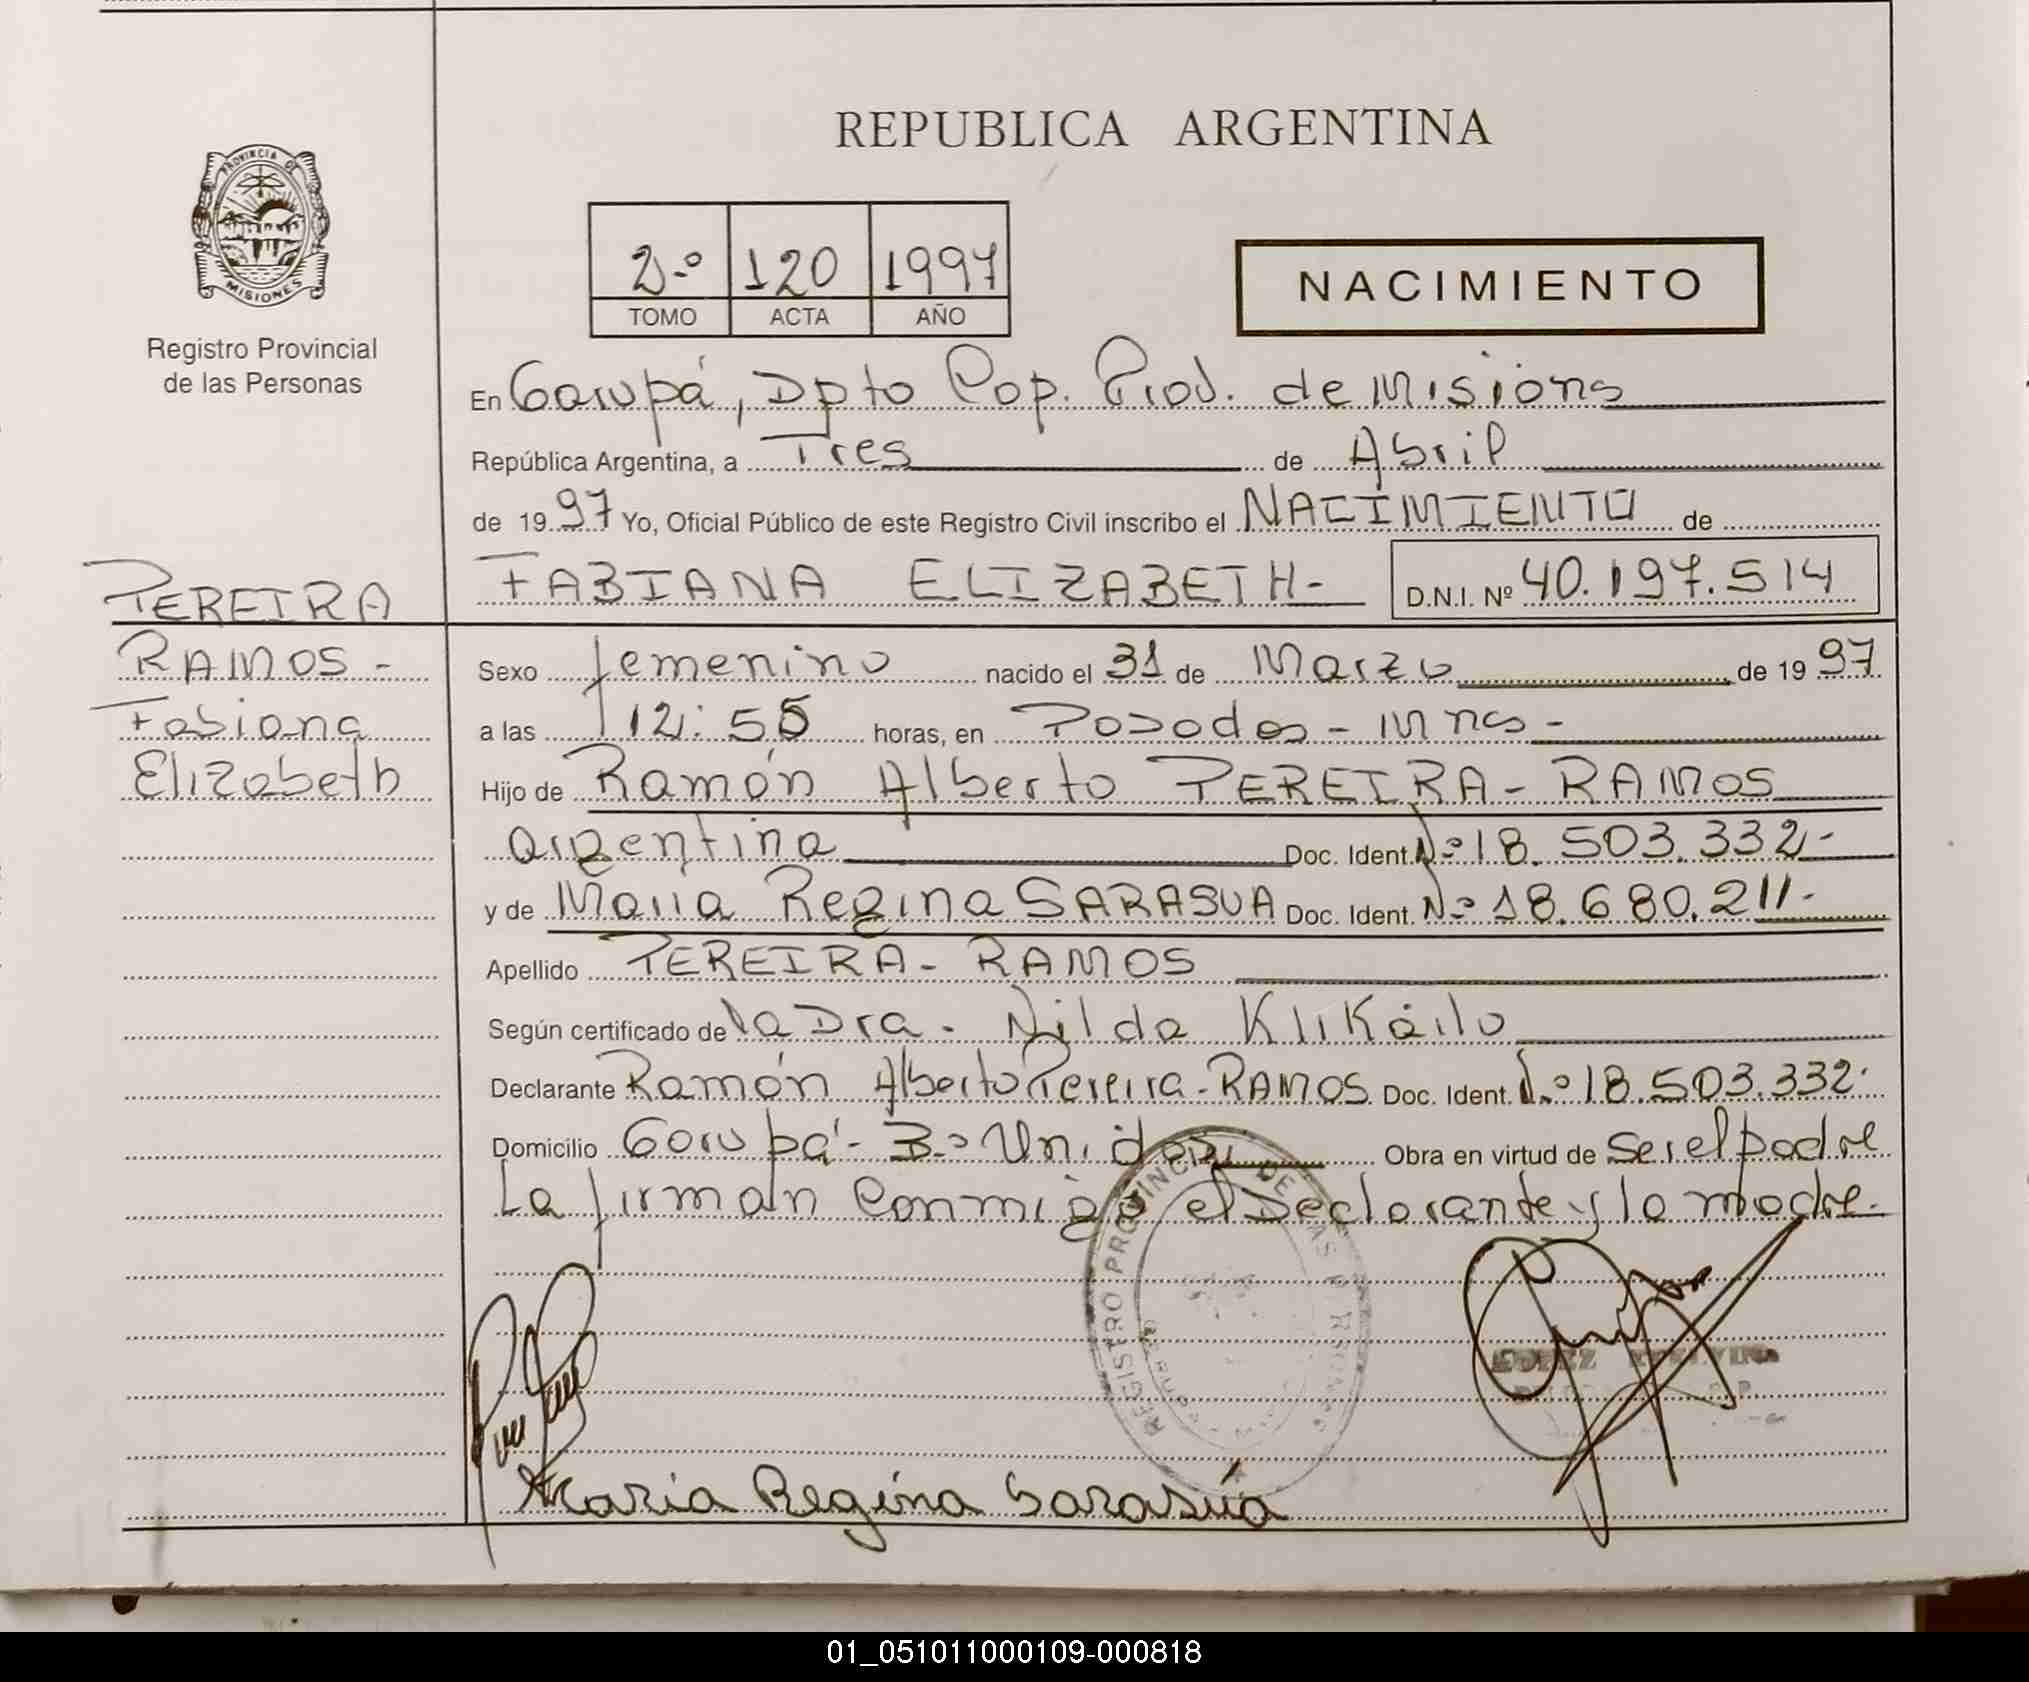 REPUBLICA ARGENTINA
PROVINCIA DE MISIONES
Registro Provincial
de las Personas
2.º 120 1997
TOMO ACTA AÑO
NACIMIENTO
En Garupá, Dpto Cap. Prov. de Misions
República Argentina, a Tres de Abril
de 1997 Yo, Oficial Público de este Registro Civil inscribo el NACIMIENTO de
FABIANA ELIZABETH- D.N.I. Nº 40.197.514
PEREIRA
RAMOS -
Fabiana
Elizabeth
Sexo femenino nacido el 31 de Marzo de 1997
a las 12:55 horas, en Posadas - Mnes -
Hijo de Ramón Alberto PEREIRA - RAMOS
argentina Doc. Ident. Nº 18.503.332-
y de Maria Regina SARASUA Doc. Ident. Nº 18.680.211-
Apellido PEREIRA - RAMOS
Según certificado de la Dra. Nilda Klikailo
Declarante Ramón Alberto Pereira - RAMOS Doc. Ident. Nº 18.503.332.
Domicilio Garupá - Bº Unidos Obra en virtud de ser el padre
La firman Conmigo el Declarante y la madre.
REGISTRO PROVINCIAL DE LAS PERSONAS
Maria Regina Sarasúa
01_051011000109-000818